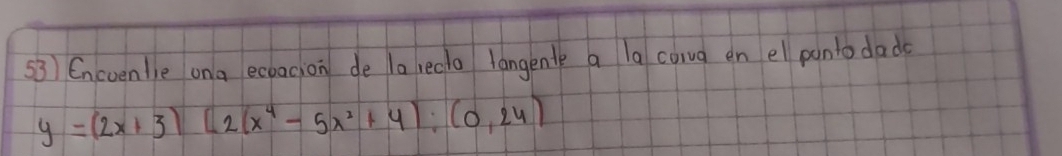 53) Encuentre una ecuación de la recta tangente a la curva en el punto dado
y = (2x + 3) [2(x⁴ - 5x² + 4) ; (0, 24)